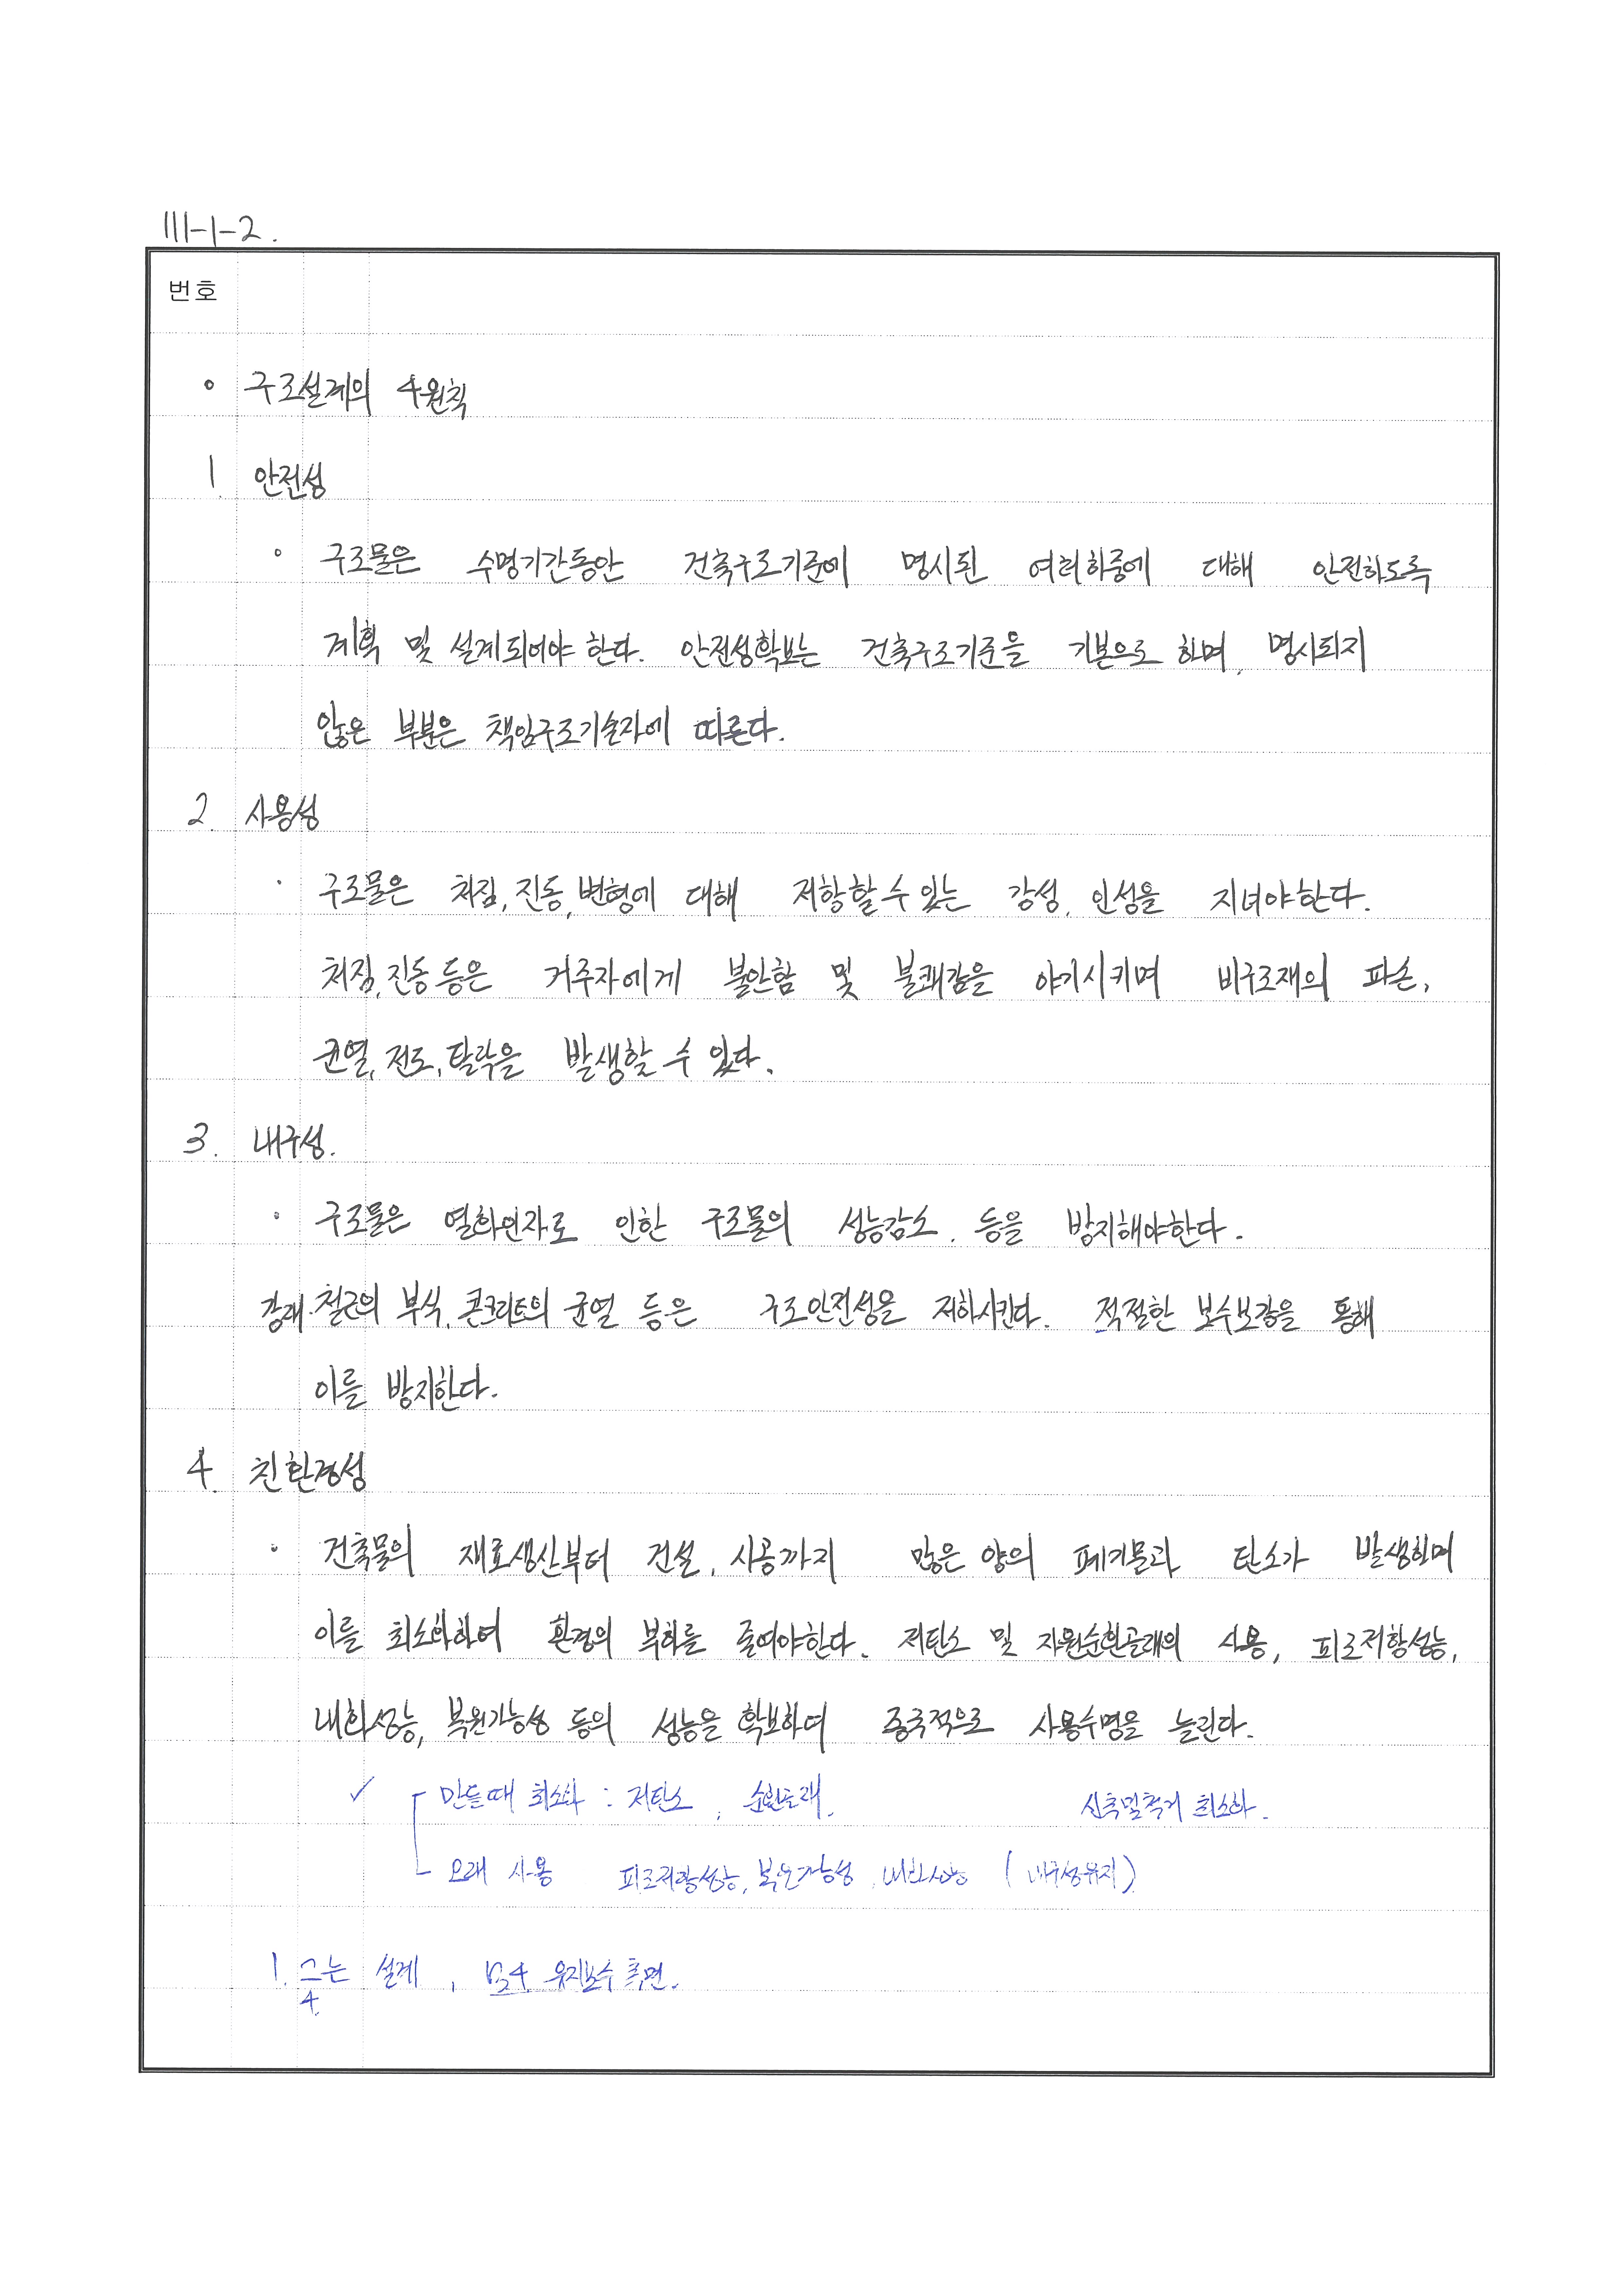 III-1-2.
번호
∘ 구조설계의 4원칙
1. 안전성
∘ 구조물은 수명기간동안 건축구조기준에 명시된 여러하중에 대해 안전하도록
계획 및 설계되어야 한다. 안전성확보는 건축구조기준을 기본으로 하며, 명시되지
않은 부분은 책임구조기술자에 따른다.
2. 사용성
· 구조물은 처짐, 진동, 변형에 대해 저항할 수 있는 강성, 인성을 지녀야한다.
처짐, 진동 등은 거주자에게 불안함 및 불쾌감을 야기시키며 비구조재의 파손,
균열, 전도, 탈락을 발생할 수 있다.
3. 내구성.
· 구조물은 열화인자로 인한 구조물의 성능감소. 등을 방지해야한다.
강재·철근의 부식, 콘크리트의 균열 등은 구조안전성을 저하시킨다. 적절한 보수보강을 통해
이를 방지한다.
4. 친환경성
· 건축물의 재료생산부터 건설, 시공까지 많은 양의 폐기물과 탄소가 발생하며
이를 최소화하여 환경의 부하를 줄여야한다. 저탄소 및 자원순환골재의 사용, 피로저항성능,
내화성능, 복원가능성 등의 성능을 확보하여 종국적으로 사용수명을 늘린다.
✓ 만들때 최소화 : 저탄소, 순환골재. 신축및철거 최소화.
오래 사용 피로저항성능, 복원가능성, 내화성능 (내구성유지)
1. 설계, 유지보수 측면.
4.